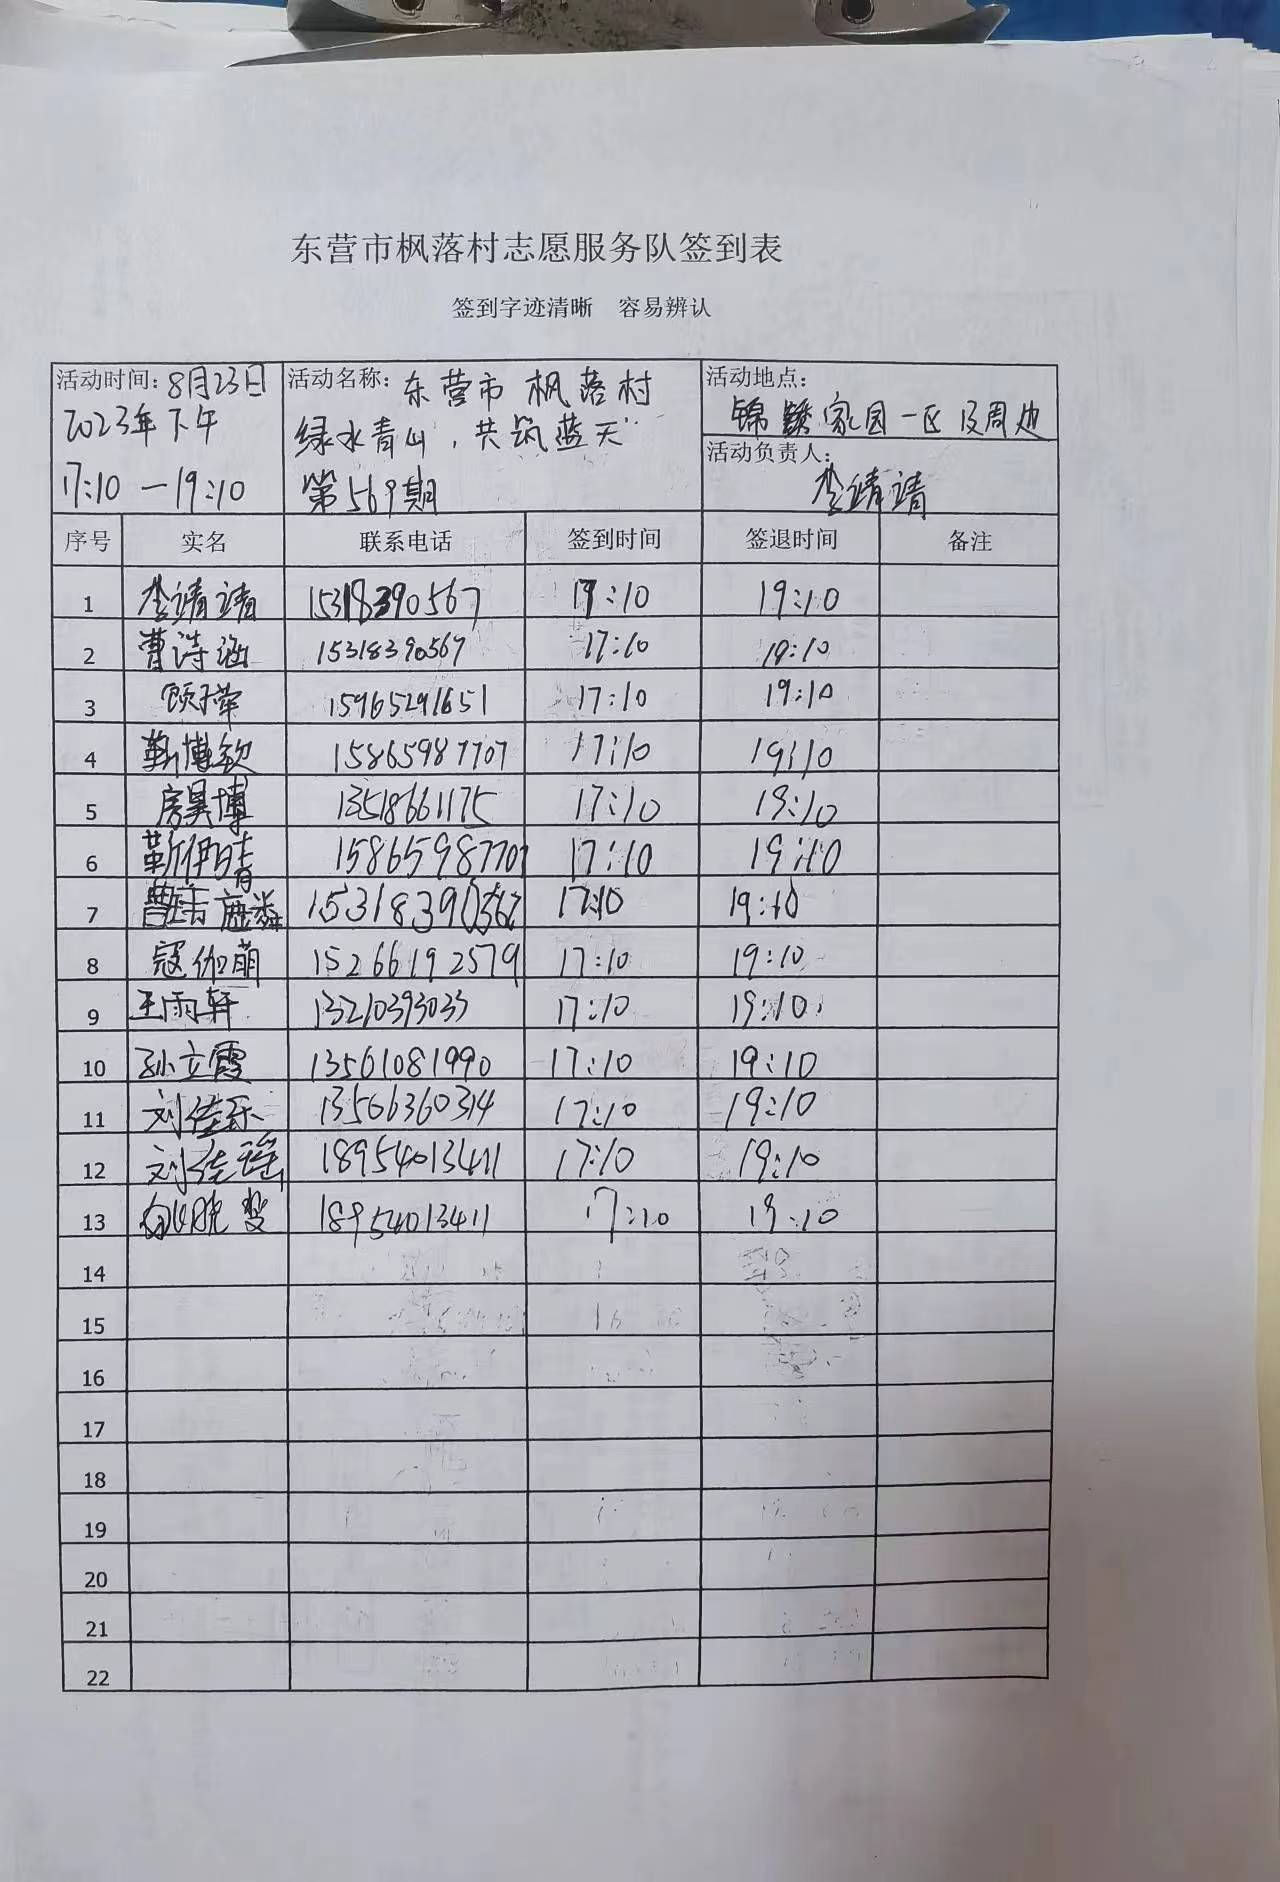 东营市枫落村志愿服务队签到表
签到字迹清晰 容易辨认
活动时间：8月23日
2023年下午
17:10－19:10
活动名称：东营市枫落村
绿水青山，共筑蓝天
第569期
活动地点：
锦绣家园一区及周边
活动负责人：
李靖靖
序号 实名 联系电话 签到时间 签退时间 备注
1 李靖靖 15318390567 17:10 19:10
2 曹诗涵 15318390567 17:10 19:10
3 顾子荦 15965291651 17:10 19:10
4 靳博钦 15865987707 17:10 19:10
5 房昊博 13518661175 17:10 19:10
6 靳伊晴 15865987707 17:10 19:10
7 15318390567 17:10 19:10
8 寇伽萌 15266192579 17:10 19:10
9 王雨轩 13210393033 17:10 19:10
10 孙立霞 13561081990 17:10 19:10
11 刘佳乐 13566360314 17:10 19:10
12 刘佳瑶 18954013411 17:10 19:10
13 18954013411 17:10 19:10
14
15
16
17
18
19
20
21
22